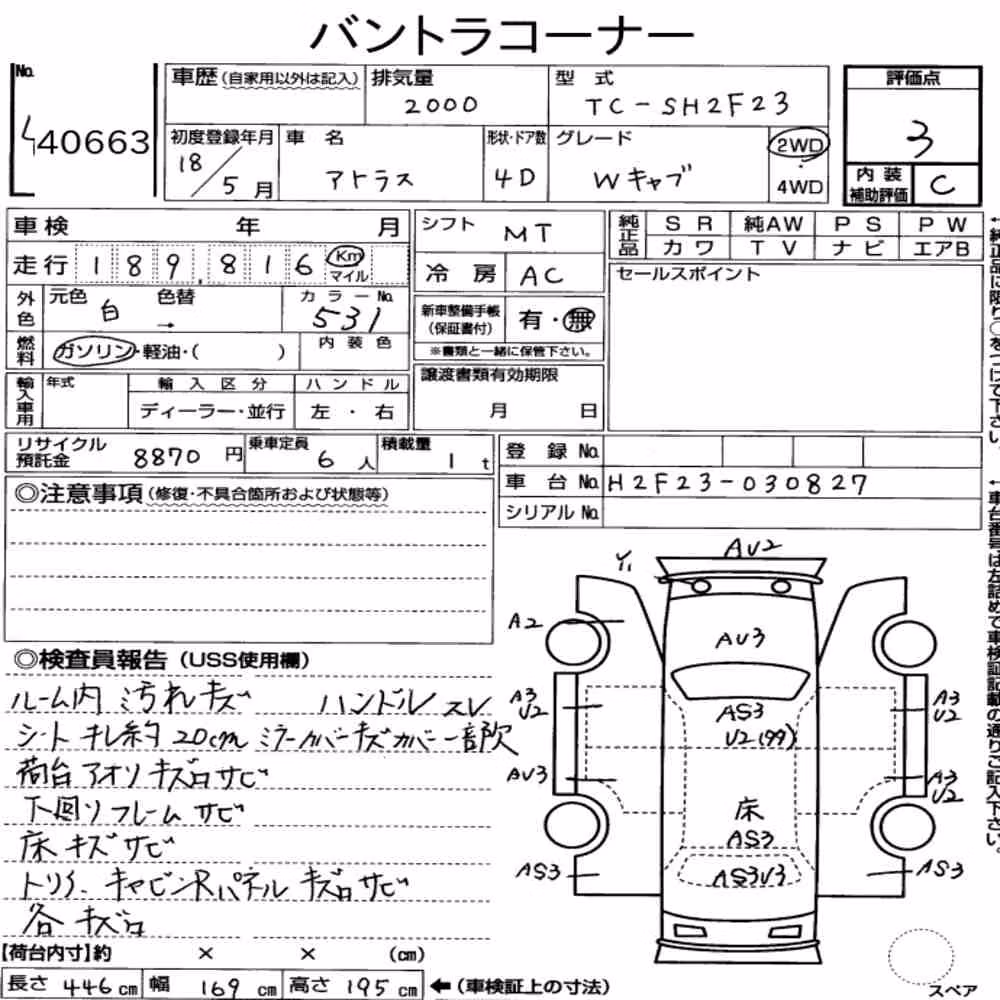 バントラコーナー
No. 40663
車歴 (自家用以外は記入)
排気量 2000
型式 TC-SH2F23
評価点 3
初度登録年月 18/5月
車名 アトラス
形状・ドア数 4D
グレード Wキャブ
2WD
4WD
内装補助評価 C
車検 年 月
シフト MT
純正品 SR 純AW PS PW
カワ TV ナビ エアB
走行 189,816 Km マイル
冷房 AC
セールスポイント
外色 元色 白 色替 → カラーNo. 531
新車整備手帳 (保証書付) 有・無
※書類と一緒に保管下さい。
燃料 ガソリン・軽油・( ) 内装色
輸入車用 年式 輸入区分 ハンドル
ディーラー・並行 左・右
譲渡書類有効期限
月 日
リサイクル預託金 8870円
乗車定員 6人
積載量 1t
登録No.
車台No. H2F23-030827
シリアルNo.
◎注意事項 (修復・不具合箇所および状態等)
◎検査員報告 (USS使用欄)
ルーム内 汚れキズ ハンドルスレ
シートキレ約20cm ミラーカバーキズカバー一部欠
荷台アオリキズロサビ
下回りフレームサビ
床キズサビ
キャビンRパネルキズロサビ
各キズロ
【荷台内寸】約 × × (cm)
長さ 446cm 幅 169cm 高さ 195cm ←(車検証上の寸法)
AV2
Y1
A2
AV3
A3
V2
AS3
V2(99)
A3
V2
AV3
A3
V2
床
AS3
AS3
AS3V3
AS3
スペア
←純正品に限り○をつけて下さい。
←車台番号は左詰めで車検証記載の通りご記入下さい。